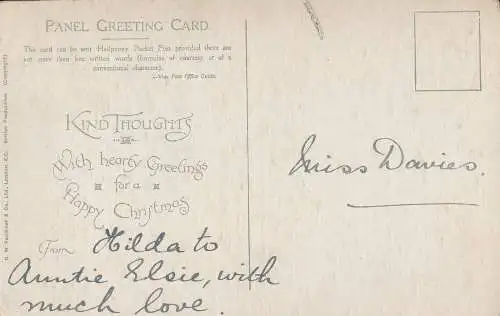 PANEL GREETING CARD.
This card can be sent Halfpenny Packet Post provided there are
not more than five written words (formulas of courtesy or of a
conventional character).
Post Office Guide.
KIND THOUGHTS
With hearty Greetings
for a
Happy Christmas
From Hilda to
Auntie Elsie, with
much love.
Miss Davies.
C. W. Faulkner & Co., Ltd., London, E.C. British Production (Copyright)